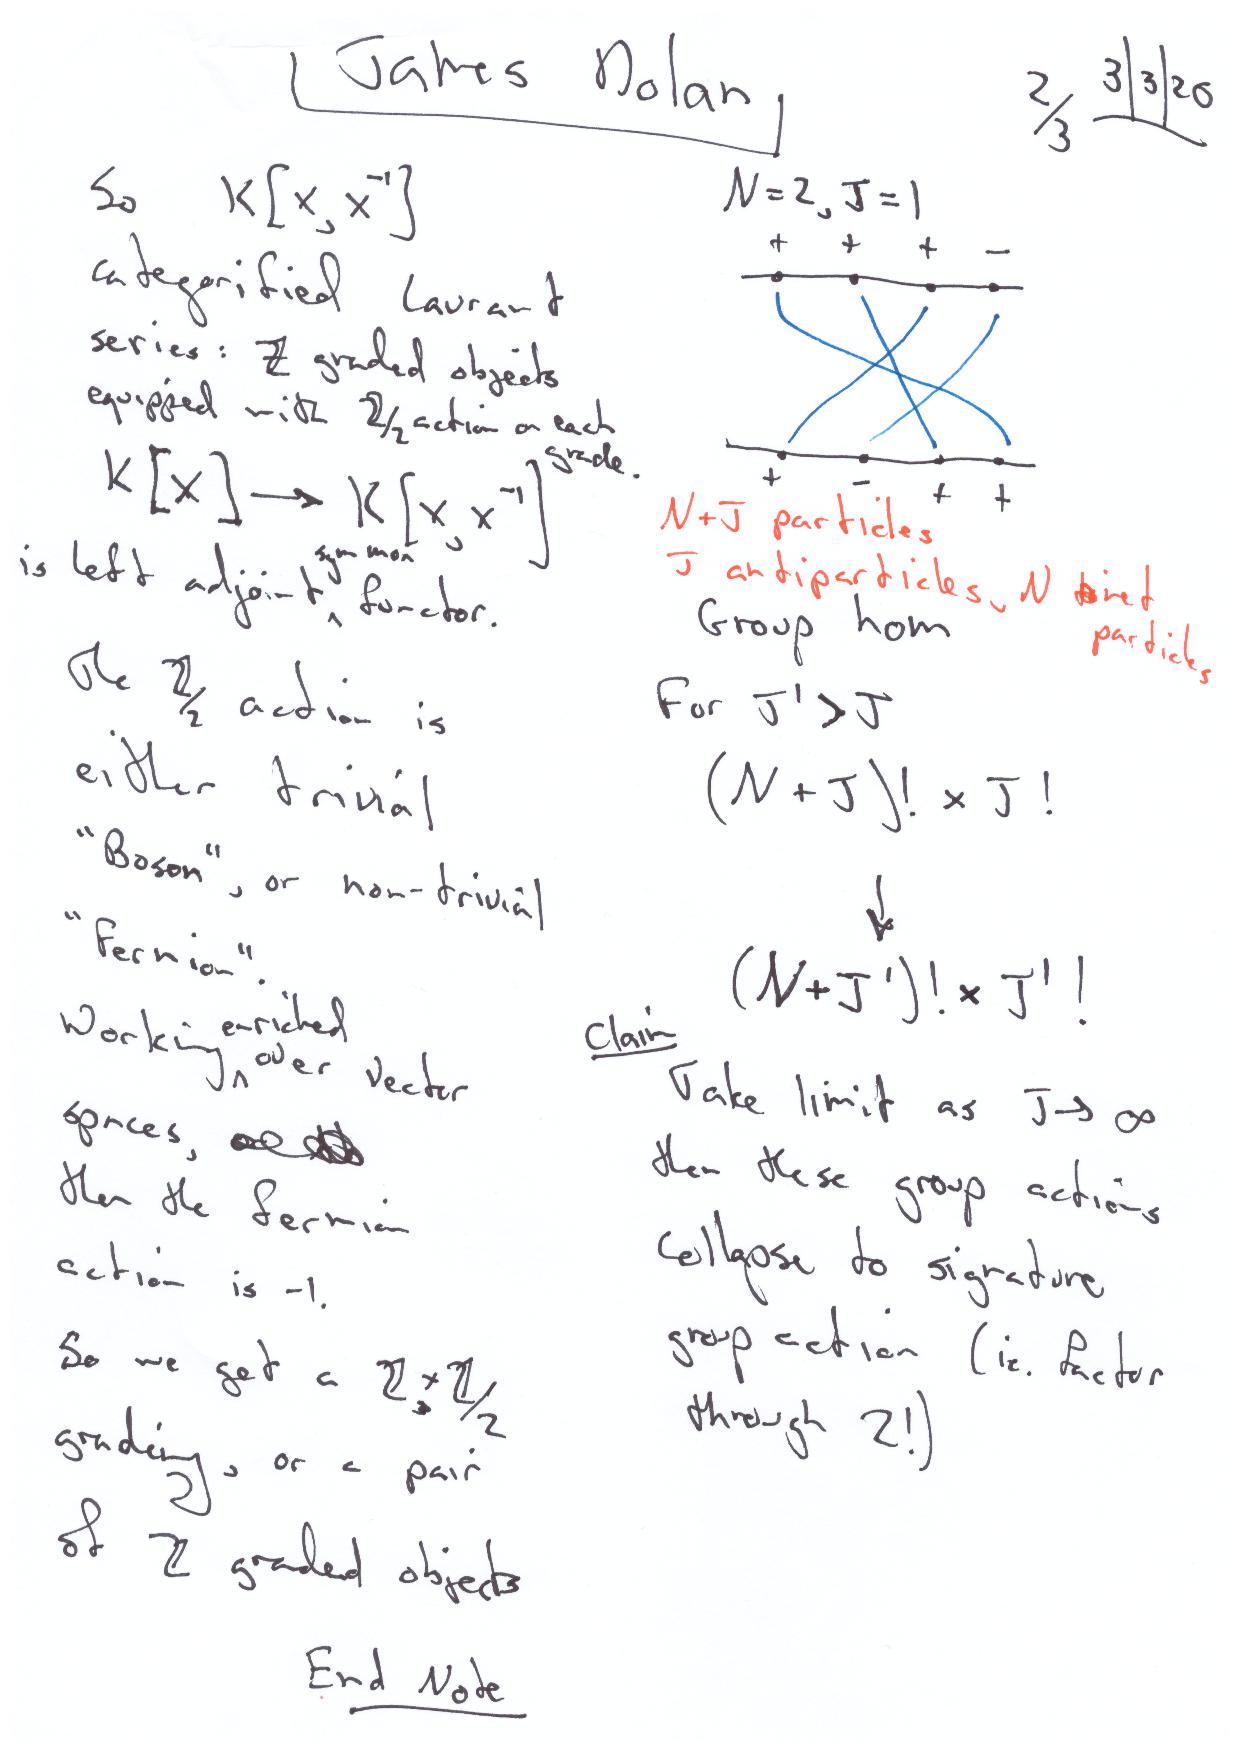 James Dolan
2/3 3|3|20
So K[x, x⁻¹]
categorified Laurant
series: ℤ graded objects
equipped with ℤ/2 action on each
grade.
K[x] → K[x, x⁻¹]
is left adjoint ^ symmon functor.
The ℤ/2 action is
either trivial
"Boson", or non-trivial
"Fermion".
Working ^ enriched over vector
spaces,
then the fermion
action is -1.
So we get a ℤ × ℤ/2
grading, or a pair
of ℤ graded objects
End Note
N=2, J=1
+ + + −
+ − + +
N+J particles
J antiparticles, N net
particles
Group hom
For J' > J
(N + J)! × J!
↓
(N+J')! × J'!
Claim
Take limit as J → ∞
then these group actions
collapse to signature
group action (ie. factor
through 2!)